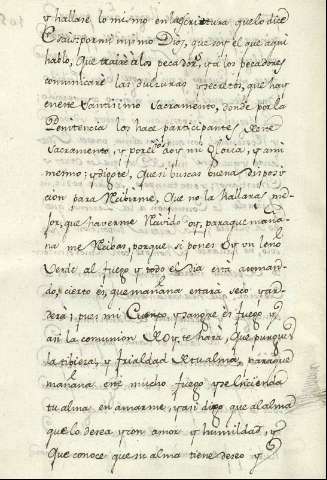 y hallase lo mesmo en la scriptura que lo dice
Esais: por mi mismo Dios, que soy el que aqui
hablo, Que traire a los pecador.s, y a los pecadores
comunicare las dulzuras y secretos, que hay
en ese Santissimo Sacramento, donde por la
Penitencia los hace participantes
Sacramento, y por el os doy mi Gloria, y a mi
mesmo; y digote, Que si buscas buena disposi
cion para Recibirme, Que no la hallaras me
jor, que haverme Recivido oy, para que maña
na me Recibas, porque si pones oy un leño
verde al fuego y todo el Dia está aviman
do, cierto es, que mañana estará seco y ar
derá; pues mi Cuerpo, y sangre es fuego y
asi la comunion de oy, te hará, Que purgues
la tibieza, y frialdad de tu alma, para que
mañana ese mucho fuego y se encienda
tu alma en amarme, y asi digo, que al alma
que lo desea y con amor y humildad, y
Que conoce que su alma tiene deseo y